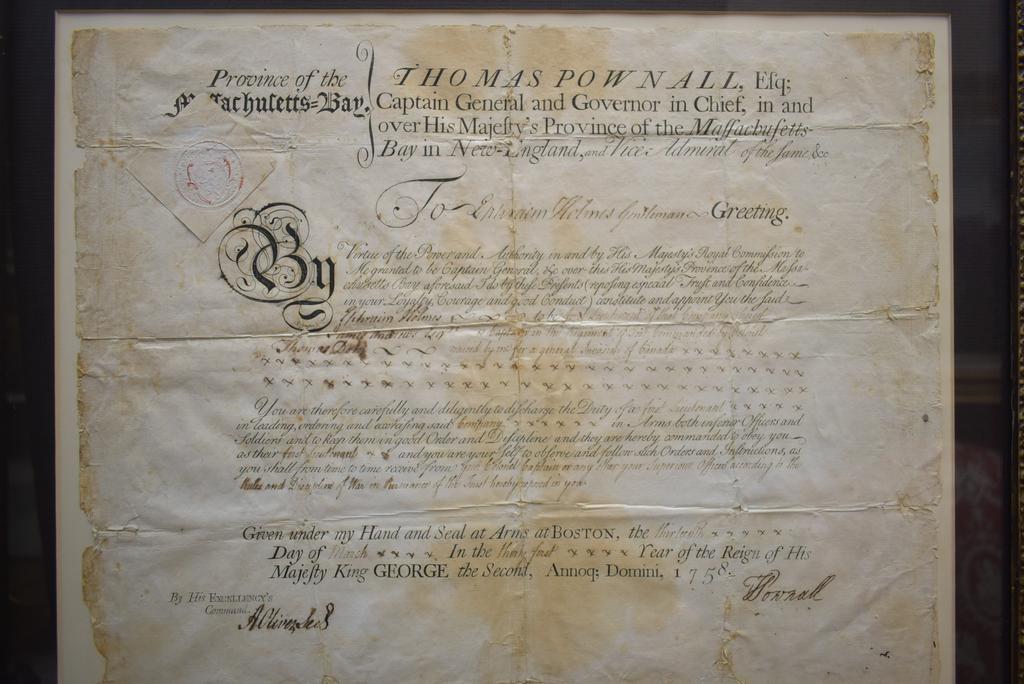 Province of the
Massachusetts=Bay.
THOMAS POWNALL, Eſq;
Captain General and Governor in Chief, in and
over His Majeſty's Province of the Maſſachuſetts-
Bay in New-England, and Vice-Admiral of the ſame, &c
To Ephraim Holmes Gentleman Greeting.
By Virtue of the Power and Authority, in and by His Majeſty's Royal Commiſſion to
Me granted to be Captain General, &c. over this His Majeſty's Province of the Maſſa-
chuſetts-Bay aforeſaid; I do by theſe Preſents (repoſing eſpecial Truſt and Confidence
in your Loyalty, Courage and good Conduct) conſtitute and appoint You the ſaid
Ephraim Holmes to be firſt Lieutenant of
is Captain in the Regiment of Foot Commanded by Colonel
Thomas raised by me for a general Invasion of Canada x x x x x x x x
x x x x x x x x x x x x x x x x x x x x x x x x
x x x x x x x x x x x x x x x x x x x x x x x x
You are therefore carefully and diligently to diſcharge the Duty of a firſt Lieutenant x x x x x
in leading, ordering and exerciſing ſaid Company x x x x x x in Arms, both inferior Officers and
Soldiers; and to keep them in good Order and Diſcipline; and they are hereby commanded to obey you
as their firſt Lieutenant x x and you are your ſelf to obſerve and follow ſuch Orders and Inſtructions, as
you ſhall from time to time receive from your Colonel Captain or any other your Superiour Officers according to the
Rules and Discipline of War in Pursuance of the Trust hereby reposed in you.
Given under my Hand and Seal at Arms at BOSTON, the thirteenth x x x x x
Day of March x x x x, In the thirty first x x x x Year of the Reign of His
Majeſty King GEORGE the Second, Annoq; Domini, 1758.
By His EXCELLENCY'S
Command.
A Oliver Secry
T Pownall